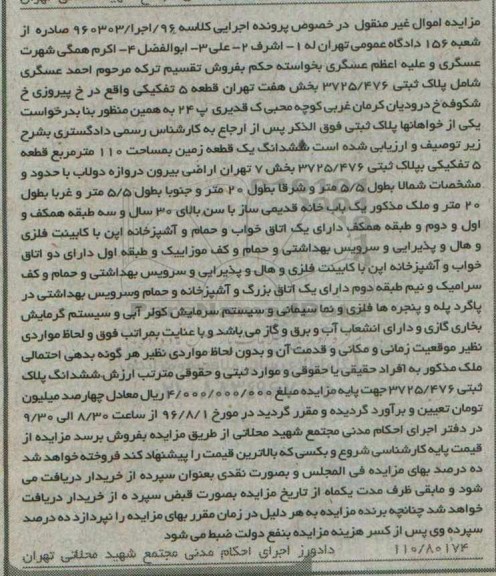 مزایده اموال غیر منقول در خصوص پرونده اجرایی کلاسه ۹۶/اجرا/۹۶۰۳۰۳ صادره از
شعبه ۱۵۶ دادگاه عمومی تهران له ۱- اشرف ۲-علی ۳- ابوالفضل ۴- اکرم همگی شهرت
عسگری و علیه اعظم عسگری بخواسته حکم بفروش تقسیم ترکه مرحوم احمد عسگری
شامل پلاک ثبتی ۳۷۲۵/۴۷۶ بخش هفت تهران قطعه ۵ تفکیکی واقع در خ پیروزی خ
شکوفه خ درودیان کرمان غربی کوچه محبی ک قدیری پ ۲۴ به همین منظور بنا بدرخواست
یکی از خواهانها پلاک ثبتی فوق الذکر پس از ارجاع به کارشناس رسمی دادگستری بشرح
زیر توصیف و ارزیابی شده است ششدانگ یک قطعه زمین بمساحت ۱۱۰ مترمربع قطعه
۵ تفکیکی بپلاک ثبتی ۳۷۲۵/۴۷۶ بخش ۷ تهران اراضی بیرون دروازه دولاب با حدود و
مشخصات شمالا بطول ۵/۵ متر و شرقا بطول ۲۰ متر و جنوبا بطول ۵/۵ متر و غربا بطول
۲۰ متر و ملک مذکور یک باب خانه قدیمی ساز با سن بالای ۳۰ سال و سه طبقه همکف و
اول و دوم و طبقه همکف دارای یک اتاق خواب و حمام و آشپزخانه اپن با کابینت فلزی
و هال و پذیرایی و سرویس بهداشتی و حمام و کف موزاییک و طبقه اول دارای دو اتاق
خواب و آشپزخانه اپن با کابینت فلزی و هال و پذیرایی و سرویس بهداشتی و حمام و کف
سرامیک و نیم طبقه دوم دارای یک اتاق بزرگ و آشپزخانه و حمام وسرویس بهداشتی در
پاگرد پله و پنجره ها فلزی و نما سیمانی و سیستم سرمایش کولر آبی و سیستم گرمایش
بخاری گازی و دارای انشعاب آب و برق و گاز می باشد و با عنایت بمراتب فوق و لحاظ مواردی
نظیر موقعیت زمانی و مکانی و قدمت آن و بدون لحاظ مواردی نظیر هر گونه بدهی احتمالی
ملک مذکور به افراد حقیقی یا حقوقی و موارد ثبتی و حقوقی مترتب ارزش ششدانگ پلاک
ثبتی ۳۷۲۵/۴۷۶ جهت پایه مزایده مبلغ ۴/۰۰۰/۰۰۰/۰۰۰ ریال معادل چهارصد میلیون
تومان تعیین و برآورد گردیده و مقرر گردید در مورخ ۹۶/۸/۱ از ساعت ۸/۳۰ الی ۹/۳۰
در دفتر اجرای احکام مدنی مجتمع شهید محلاتی از طریق مزایده بفروش برسد مزایده از
قیمت پایه کارشناسی شروع و بکسی که بالاترین قیمت را پیشنهاد کند فروخته خواهد شد
ده درصد بهای مزایده فی المجلس و بصورت نقدی بعنوان سپرده از خریدار دریافت می
شود و مابقی ظرف مدت یکماه از تاریخ مزایده بصورت قبض سپرده از خریدار دریافت
خواهد شد چنانچه برنده مزایده به هر دلیل در زمان مقرر بهای مزایده را نپردازد ده درصد
سپرده وی پس از کسر هزینه مزایده بنفع دولت ضبط می شود
۱۱۰/۸۰۱۷۴ دادورز اجرای احکام مدنی مجتمع شهید محلاتی تهران